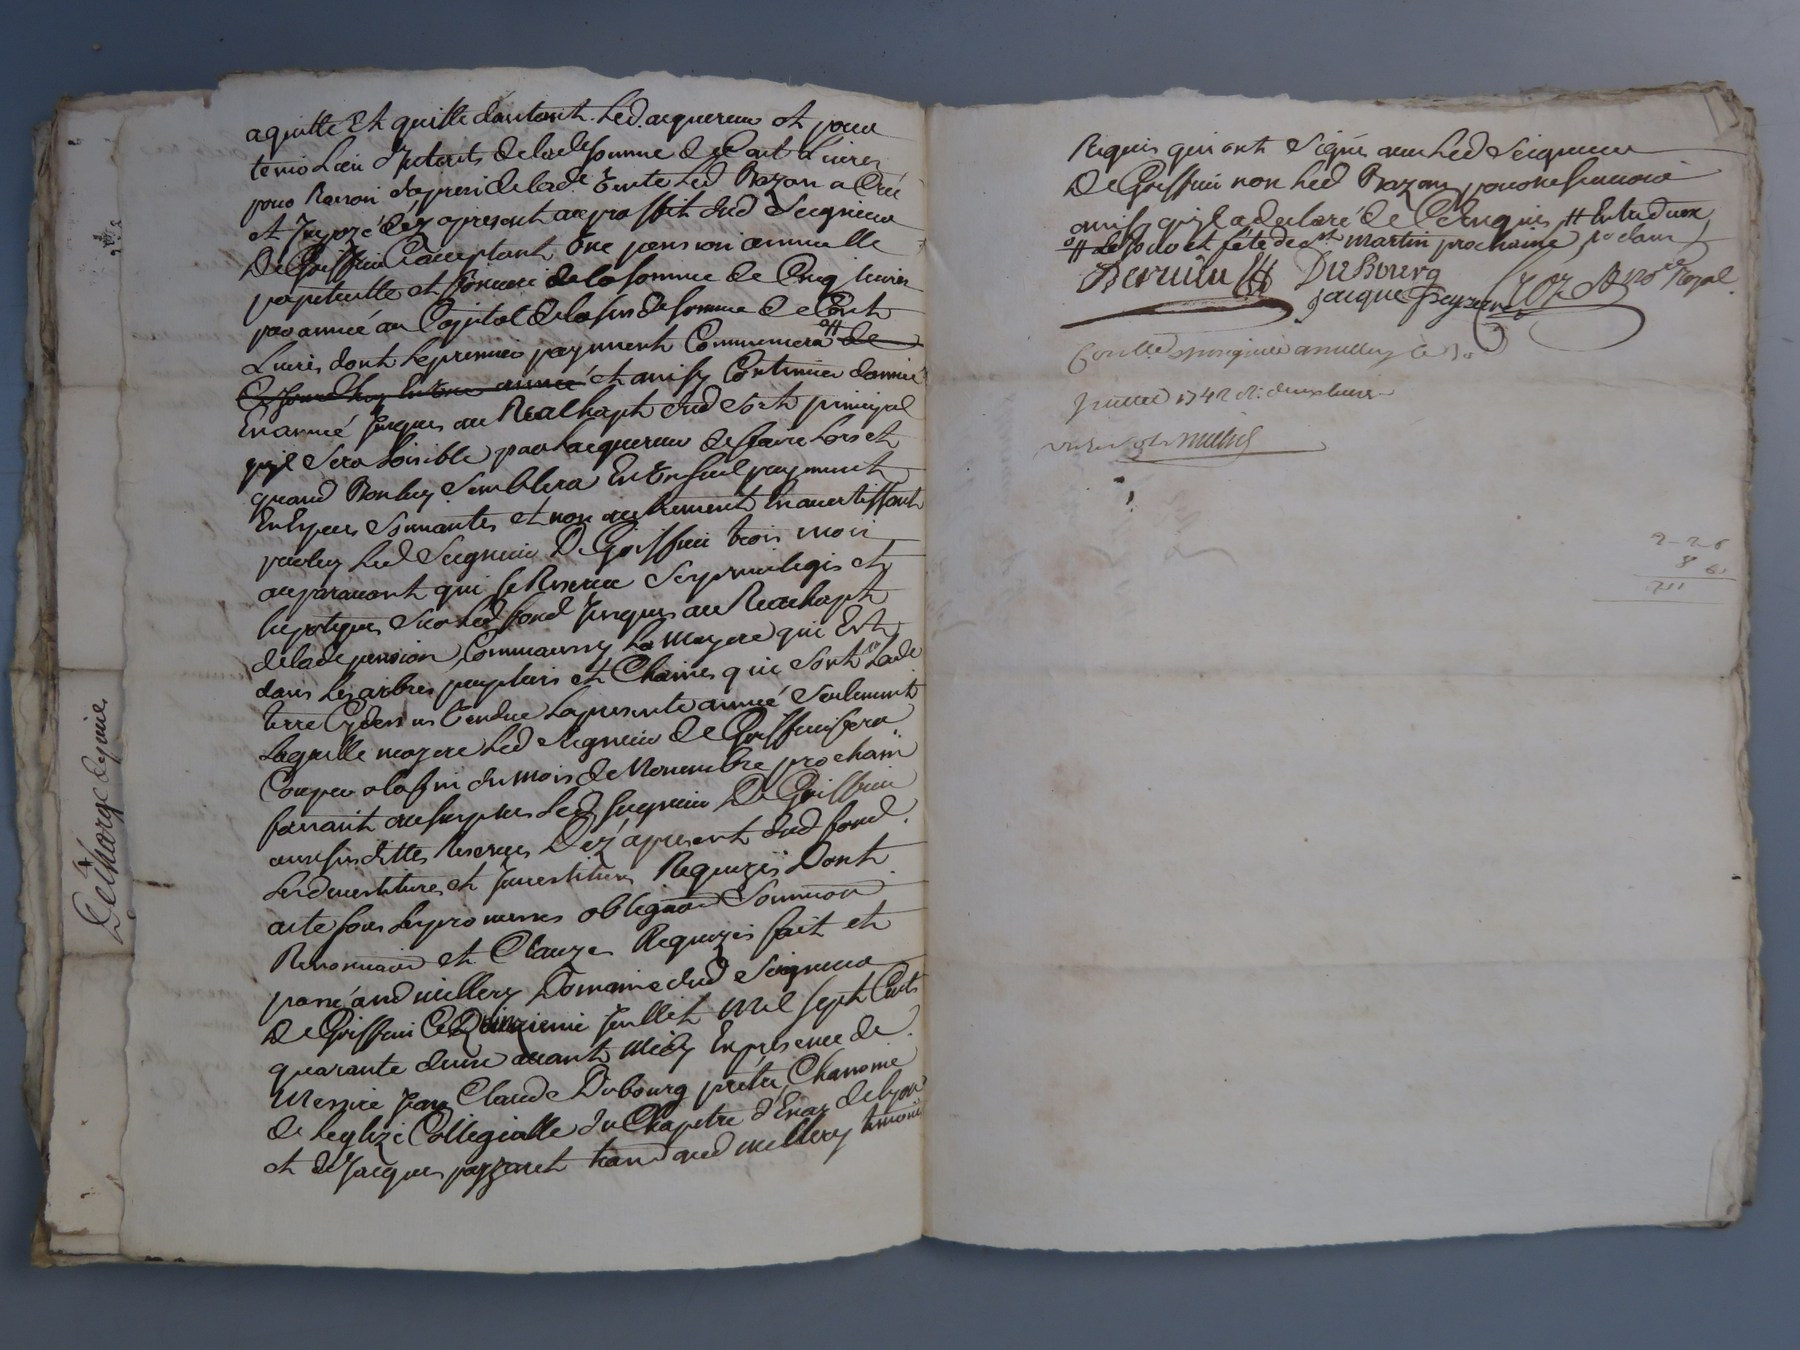 aquitte et quitte dautant led. acquereur et pour
tenir Lieu d'interets de lade somme de Cent Livres
pour Raison du prix de lade Vente led Razon a Créé
et Imposé déz apresent au proffit dud Seigneur
De Griffieu acceptant Une pension annuelle
perpetuelle et fonciere de la somme de Cinq livres
par année au Capital de lasusde somme de Cent
Livres dont le premier payment Commencera # de
Ce jourdhuy en une année et ainsy Continuer dannée
En année jusques au Reachapt dud sort principal
quil Sera loisible par lacquereur de faire Lors et
quand Bon luy Semblera En Un seul payment
En Especes Sonnantes et non autrement En avertissant
par luy led Seigneur De Griffieu trois mois
auparavant qui se Reserve Ses privileges et
hipoteques Sur led fond Jusques au Reachapt
de lade pension Comme aussy La mayere qui Est
dans les arbres peupliers et Chaines qui sont en lade
terre Cy dessus Vendue La presente année Seulement
Laquelle mayere led Seigneur de Griffieu fera
Couper a la fin du mois de Novembre prochain
faisant au surplus led Seigneur De Griffieu
aux susdittes Reserves Déz apresent dud fond
Les devestitures et Investitures Requises Dont
acte sous les promesses obligaon Soumission
Renonciaon et Clauzes Requizes fait et
passé aud millery Domaine dud Seigneur
De Griffieu Ce Quinzieme Juillet mil sept Cents
quarante deux avant midy En presence de
Messire Jean Claude Dubourg pretre Chanoine
de leglize Collegialle du Chapitre d'Enay de lyon
et de Jacques payzaret dud millery temoins
Delhorge Espine
Requis qui ont Signé avec led Seigneur
De Griffieu non led Razon pour ne scavoir
ainsy quil a declaré de Ce Enquis # Entre deux
# de jour et fête de st martin prochaine
Dubourg
Jacque Royal
Controllé a millery le
Juillet 1742 R: deux livres